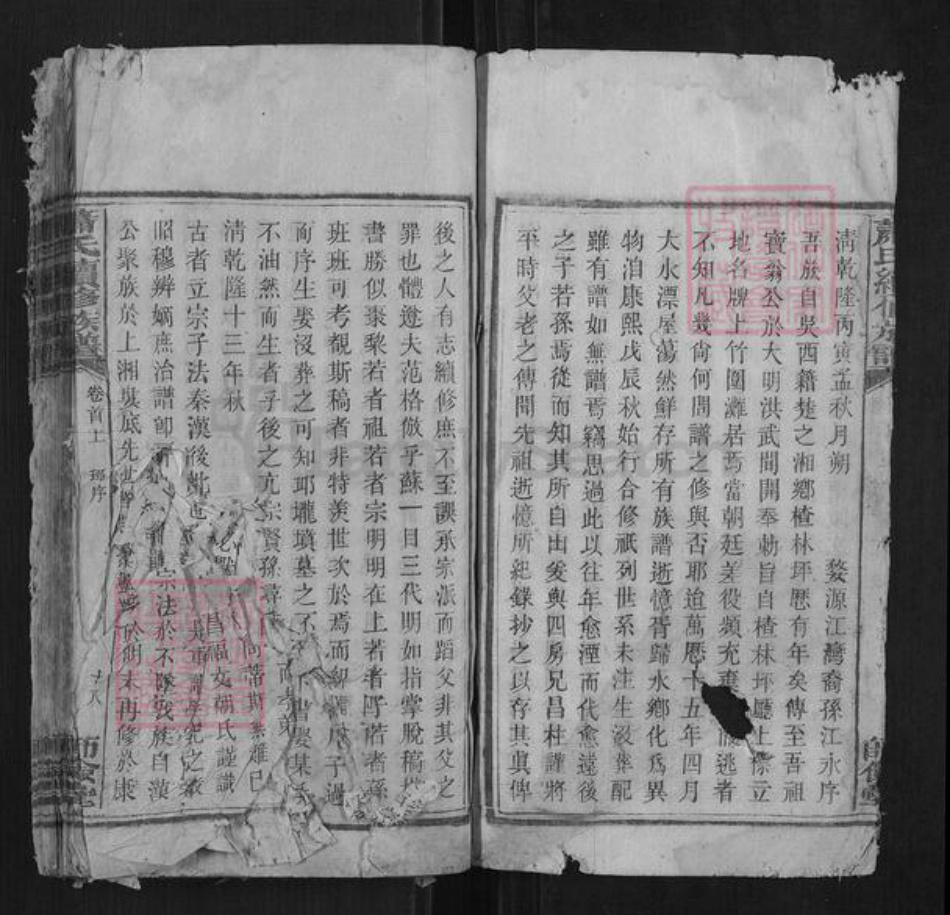 清乾隆丙寅孟秋月朔 婺源江灣裔孫江永序
吾族自吳西籍楚之湘鄉楂林坪歷有年矣傳至吾祖
寶翁公於大明洪武間開奉勅旨自楂林坪廳上標立
地名牌上竹圍灘居焉當朝廷差役頻充棄 逃者
不知凡幾尙何問譜之修與否耶迨萬曆十五年四月
大水漂屋蕩然鮮存所有族譜逝憶胥歸水鄉化爲異
物洎康熙戊辰秋始行合修祇列世系未注生沒葬配
雖有譜如無譜焉竊思過此以往年愈湮而代愈遠後
之子若孫焉從而知其所自出爰與四房兄昌柱謹將
平時父老之傳聞先祖逝憶所紀錄抄之以存其眞俾
後之人有志續修庶不至誤承宗派而蹈父非其父之
罪也體遵夫范格倣乎蘇一目三代明如指掌脫稿
書勝似棗梨若者祖若者宗明明在上若者 若者孫
班班可考覩斯稿者非特羨世次於焉而 子過
而序生娶沒葬之可知邱壠墳墓之不 書娶某
不油然而生者乎後之亢宗賢孫尋 而孝弟
清乾隆十三年秋
昌福 氏謹識
古者立宗子法秦漢後 之衰
昭穆辨嫡庶治譜卽 宗法於不墜我族自漢
公聚族於上湘吳底先世 於明末再修於康
卷首上 邱序 十八